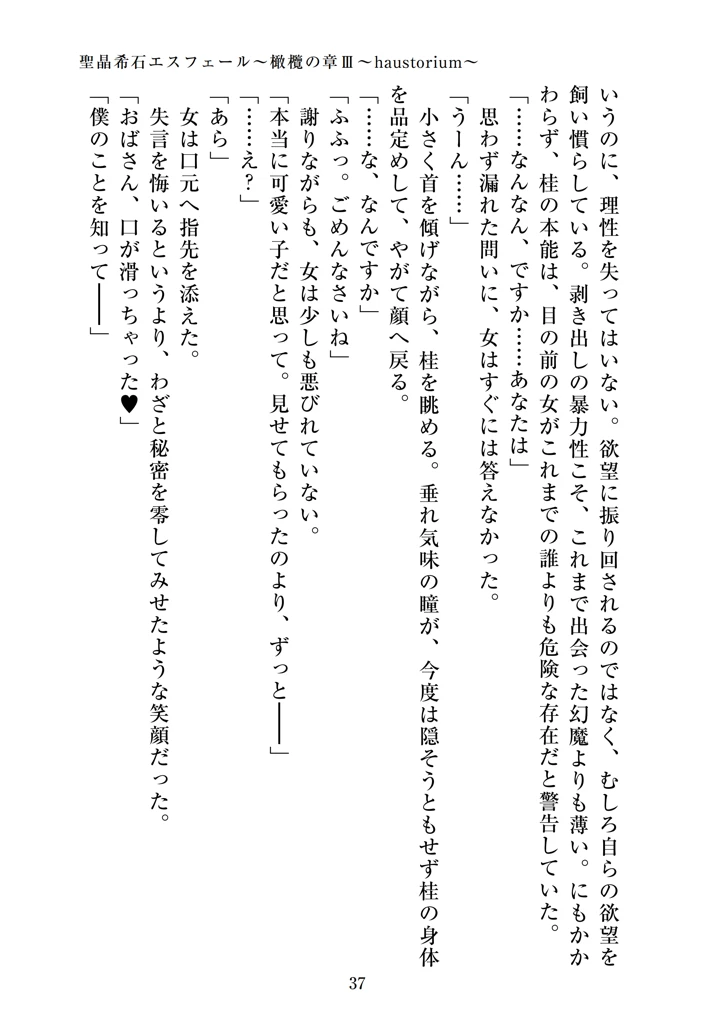 聖晶希石エスフェール～橄欖の章Ⅲ～haustorium～
いうのに、理性を失ってはいない。欲望に振り回されるのではなく、むしろ自らの欲望を
飼い慣らしている。剥き出しの暴力性こそ、これまで出会った幻魔よりも薄い。にもかか
わらず、桂の本能は、目の前の女がこれまでの誰よりも危険な存在だと警告していた。
「……なんなん、ですか……あなたは」
思わず漏れた問いに、女はすぐには答えなかった。
「うーん……」
小さく首を傾げながら、桂を眺める。垂れ気味の瞳が、今度は隠そうともせず桂の身体
を品定めして、やがて顔へ戻る。
「……な、なんですか」
「ふふっ。ごめんなさいね」
謝りながらも、女は少しも悪びれていない。
「本当に可愛い子だと思って。見せてもらったのより、ずっと――」
「……え？」
「あら」
女は口元へ指先を添えた。
失言を悔いるというより、わざと秘密を零してみせたような笑顔だった。
「おばさん、口が滑っちゃった♥」
「僕のことを知って――」
37